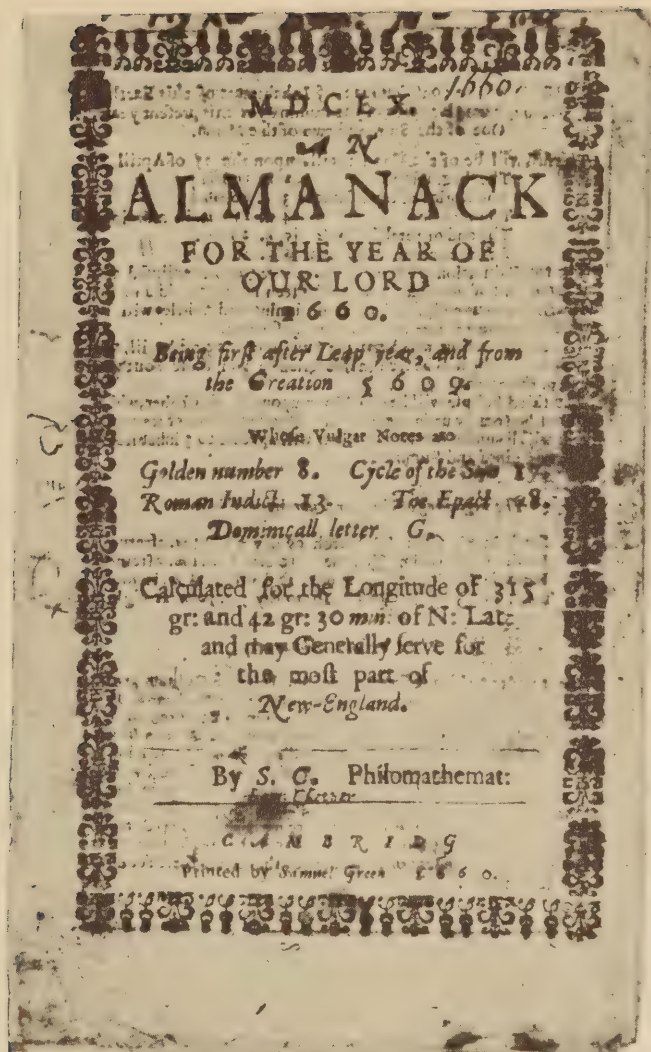 1660.
M D C L X.
AN
ALMANACK
FOR THE YEAR OF
OUR LORD
1 6 6 0.
Being firſt after Leap year, and from
the Creation 5 6 0 9.
Whoſe Vulgar Notes are
Golden number 8. Cycle of the Sun 17.
Roman Indict: 13. The Epact 28.
Dominicall letter G.
Calculated for the Longitude of 315
gr: and 42 gr: 30 min: of N: Lat:
and may Generally ſerve for
the moſt part of
New-England.
By S. C. Philomathemat:
C A M B R I D G
Printed by Samuel Green 1 6 6 0.